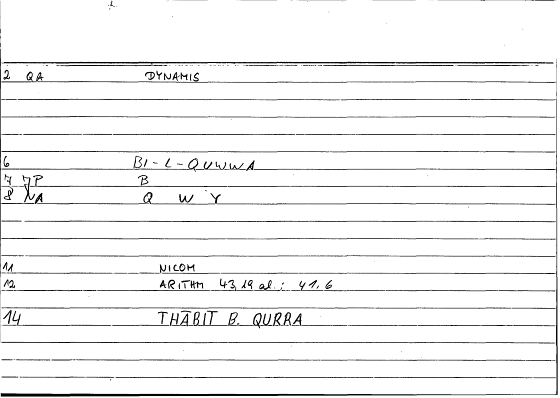 2 QA DYNAMIS
6 BI-L-QUWWA
7 7P B
8 NA Q W Y
11 NICOM
12 ARITHM 43,19 al.: 41.6
14 THĀBIT B. QURRA